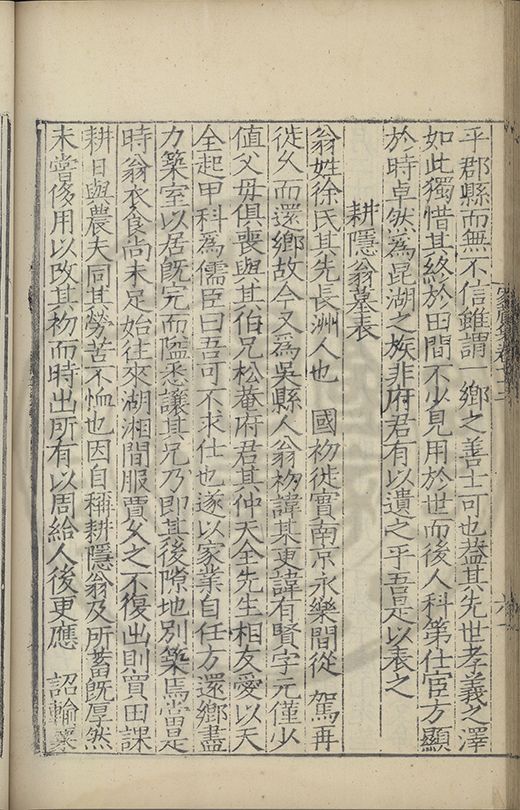 平郡縣而無不信雖謂一鄉之善士可也葢其先世孝義之澤
如此獨惜其終於田間不少見用於世而後人科第仕宦方顯
於時卓然爲昆湖之族非府君有以遺之乎吾是以表之
耕隱翁墓表
翁姓徐氏其先長洲人也 國初徙實南京永樂間從 駕再
徙久而還鄉故今又爲吳縣人翁初諱某更諱有賢字元僅少
值父母俱喪與其伯兄松菴府君其仲天全先生相友愛以天
全起甲科爲儒臣曰吾可不求仕也遂以家業自任方還鄉盡
力築室以居旣完而隘悉讓其兄乃即其後隙地別築焉當是
時翁衣食尚未足始往來湖湘間服賈久之不復出則買田課
耕日與農夫同其勞苦不恤也因自稱耕隱翁及所蓄旣厚然
未嘗侈用以改其初而時出所有以周給人後更應 詔輸粟